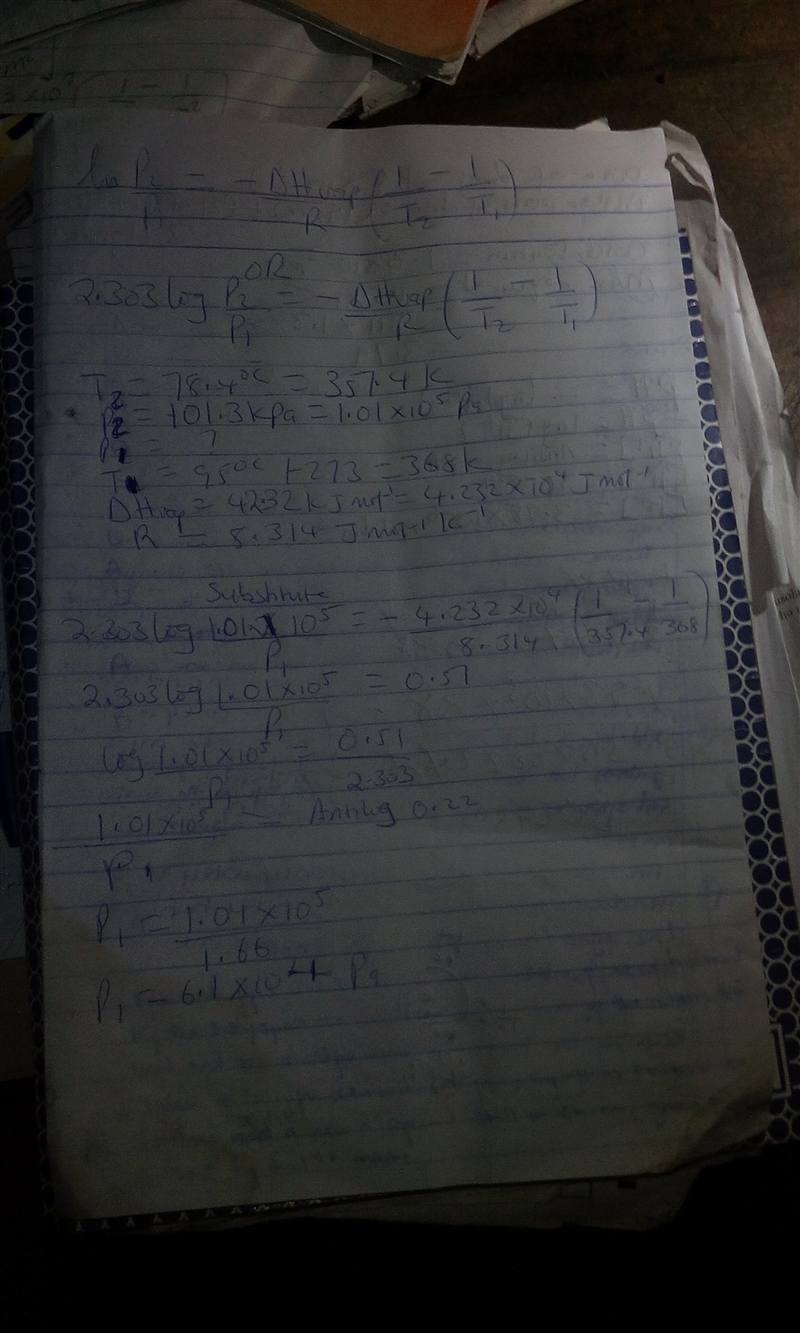 ln P₂/P₁ = -ΔHvap/R (1/T₂ - 1/T₁)
OR
2.303 log P₂/P₁ = -ΔHvap/R (1/T₂ - 1/T₁)
T₂ = 78.4°C = 357.4 K
P₂ = 101.3 kPa = 1.01 × 10⁵ Pa
P₁ = ?
T₁ = 95°C + 273 = 368 K
ΔHvap = 42.32 kJ mol⁻¹ = 4.232 × 10⁴ J mol⁻¹
R = 8.314 J mol⁻¹ K⁻¹
Substitute
2.303 log 1.01 × 10⁵/P₁ = - 4.232 × 10⁴/8.314 (1/357.4 - 1/368)
2.303 log 1.01 × 10⁵/P₁ = 0.51
log 1.01 × 10⁵/P₁ = 0.51/2.303
1.01 × 10⁵/P₁ = Antilog 0.22
P₁ = 1.01 × 10⁵/1.66
P₁ = 6.1 × 10⁴ Pa